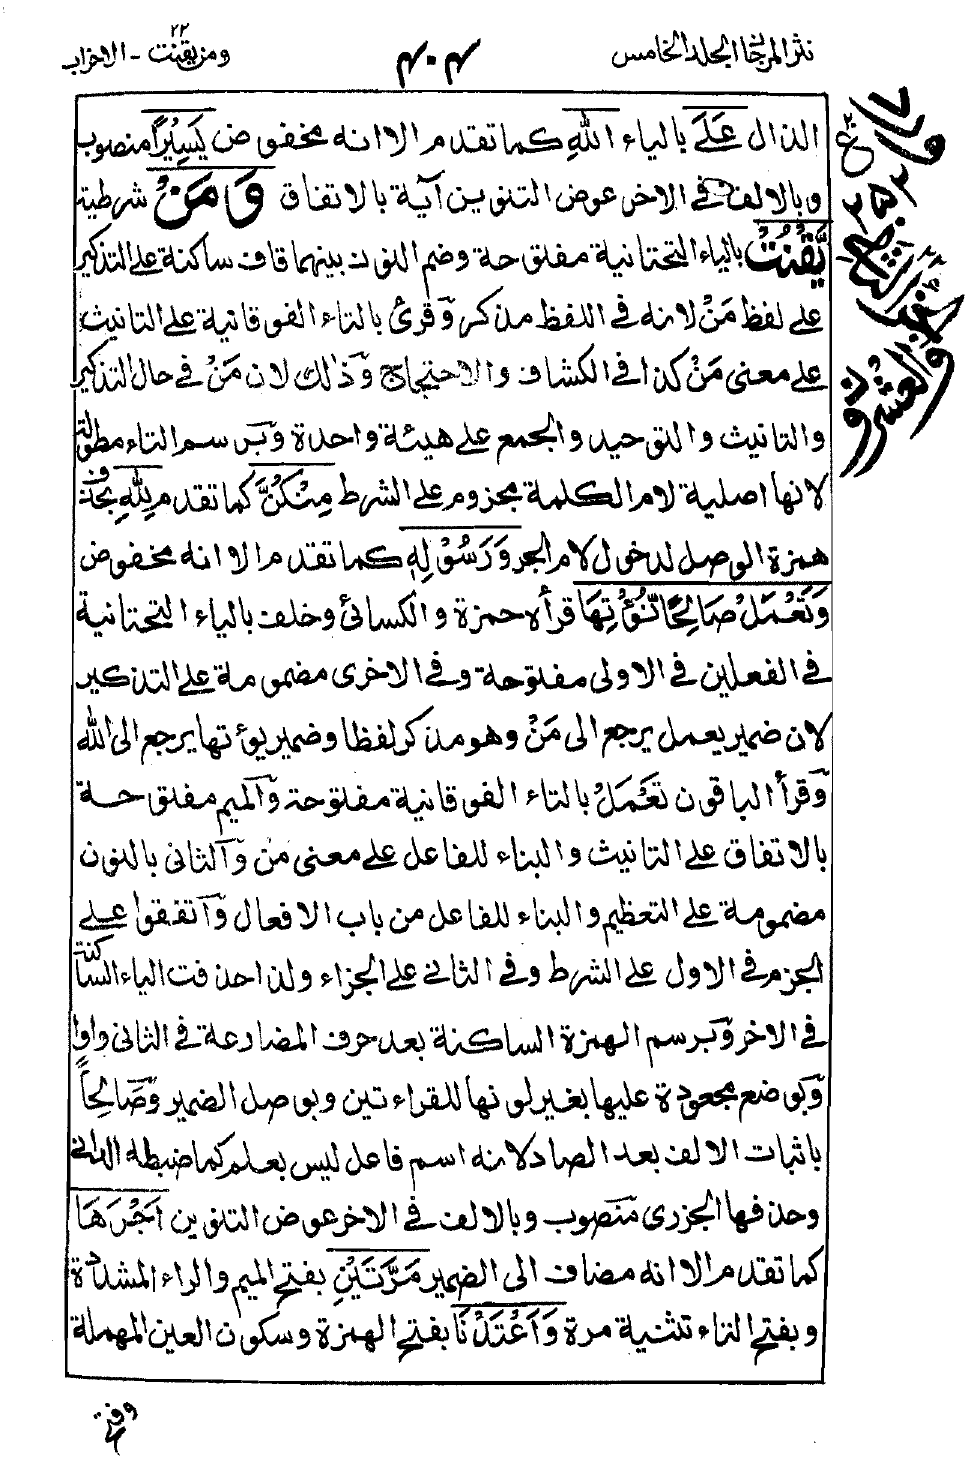 نثر المرجان الجلد الخامس
٤٠٤
ومن يقنت ٢٢ - الاحزاب
الذال عَلَى بالياء اللهِ كما تقدم الا انه مخفوض يَسِيْرًا منصوب
وبالالف في الاخر عوض التنوين آية بالاتفاق وَمَنْ شرطية
يَّقْنُتْ بالياء التحتانية مفتوحة وضم النون بينهما قاف ساكنة على التذكير
على لفظ مَنْ لانه في اللفظ مذكر وقرئ بالتاء الفوقانية على التانيث
على معنى مَنْ كذا في الكشاف والاحتجاج وذلك لان مَنْ في حال التذكير
والتانيث والتوحيد والجمع على هيئة واحدة وبرسم التاء مطولة
لانها اصلية لام الكلمة مجزوم على الشرط مِنْكُنَّ كما تقدم لِلهِ بحذف
همزة الوصل لدخول لام الجر وَرَسُوْلِهٖ كما تقدم الا انه مخفوض
وَتَعْمَلْ صَالِحًا نُّؤْتِهَا قرأه حمزة والكسائي وخلف بالياء التحتانية
في الفعلين في الاولى مفتوحة وفي الاخرى مضمومة على التذكير
لان ضمير يعمل يرجع الى مَنْ وهو مذكر لفظا وضمير يؤتها يرجع الى الله
وقرأ الباقون تَعْمَلْ بالتاء الفوقانية مفتوحة والميم مفتوحة
بالاتفاق على التانيث والبناء للفاعل على معنى من والثاني بالنون
مضمومة على التعظيم والبناء للفاعل من باب الافعال واتفقوا على
الجزم في الاول على الشرط وفي الثاني على الجزاء ولذا حذفت الياء الساكنة
في الاخر وبرسم الهمزة الساكنة بعد حرف المضارعة في الثاني واوا
وبوضع مجعودة عليها بغير لونها للقراءتين وبوصل الضمير وصَالِحًا
باثبات الالف بعد الصاد لانه اسم فاعل ليس بعلم كما ضبطه الداني
وحذفها الجزري منصوب وبالالف في الاخر عوض التنوين اَجْرَهَا
كما تقدم الا انه مضاف الى الضمير مَرَّتَيْنِ بفتح الميم والراء المشددة
وبفتح التاء تثنية مرة وَاَعْتَدْنَا بفتح الهمزة وسكون العين المهملة